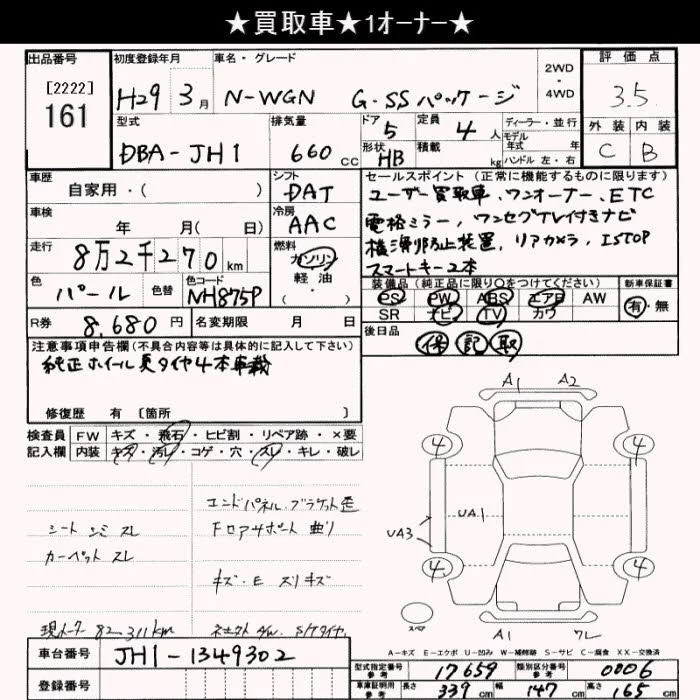 ★買取車★1オーナー★
出品番号 初度登録年月 車名・グレード 2WD・4WD 評価点
[2222]
161
H29 3月 N-WGN G・SSパッケージ 3.5
型式 排気量 ドア 5 定員 4人 ディーラー・並行 外装 内装
DBA-JH1 660cc 形状 HB 積載 kg モデル年式 年 ハンドル 左・右 C B
車歴 シフト セールスポイント (正常に機能するものに限ります)
自家用・( ) DAT ユーザー買取車、ワンオーナー、ETC
車検 冷房 電格ミラー、ワンセグTV付きナビ
年 月( 日) AAC 横滑り防止装置、リアカメラ、ISTOP
走行 燃料 スマートキー2本
8万2千270km ガソリン
軽油
・( )
装備品 (純正品に限り○をつけてください) 新車保証書
色 色替 色コード PS PW ABS エアB AW 有・無
パール NH875P SR ナビ TV カワ
R券 8,680円 名変期限 月 日 後日品 保 記 取
注意事項申告欄(不具合内容等は具体的に記入して下さい)
純正ホイール夏タイヤ4本車載
修復歴 有 [箇所 ]
検査員 FW キズ・飛石・ヒビ割・リペア跡・×要
記入欄 内装 キズ・汚レ・コゲ・穴・スレ・キレ・破レ
エンドパネル、ブラケット歪
シート シミ スレ フロアサポート 曲リ
カーペット スレ
キズ・E スリキズ
現メーター 82-311km
A1 A2
4 4
UA1
UA3
4 4
スペア
A1 7レ
A-キズ E-エクボ U-凹み W-補修跡 S-サビ C-腐食 XX-交換済
車台番号 JH1-1349302
登録番号
型式指定番号 参考 17659 類別区分番号 参考 0006
車庫証明用 参考 長さ 339cm 幅 147cm 高さ 165cm